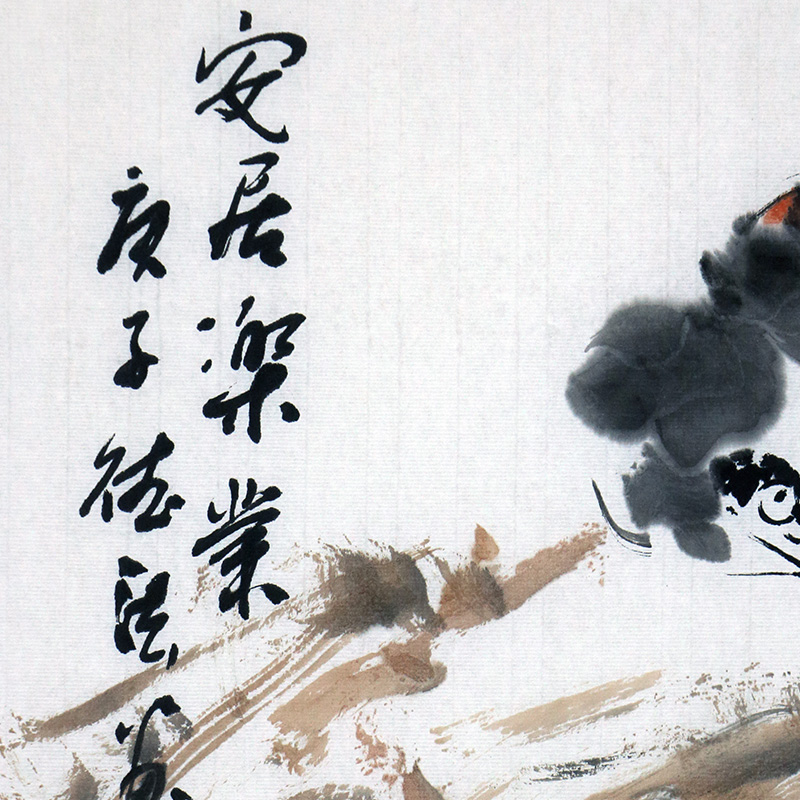 安居樂業
庚子德